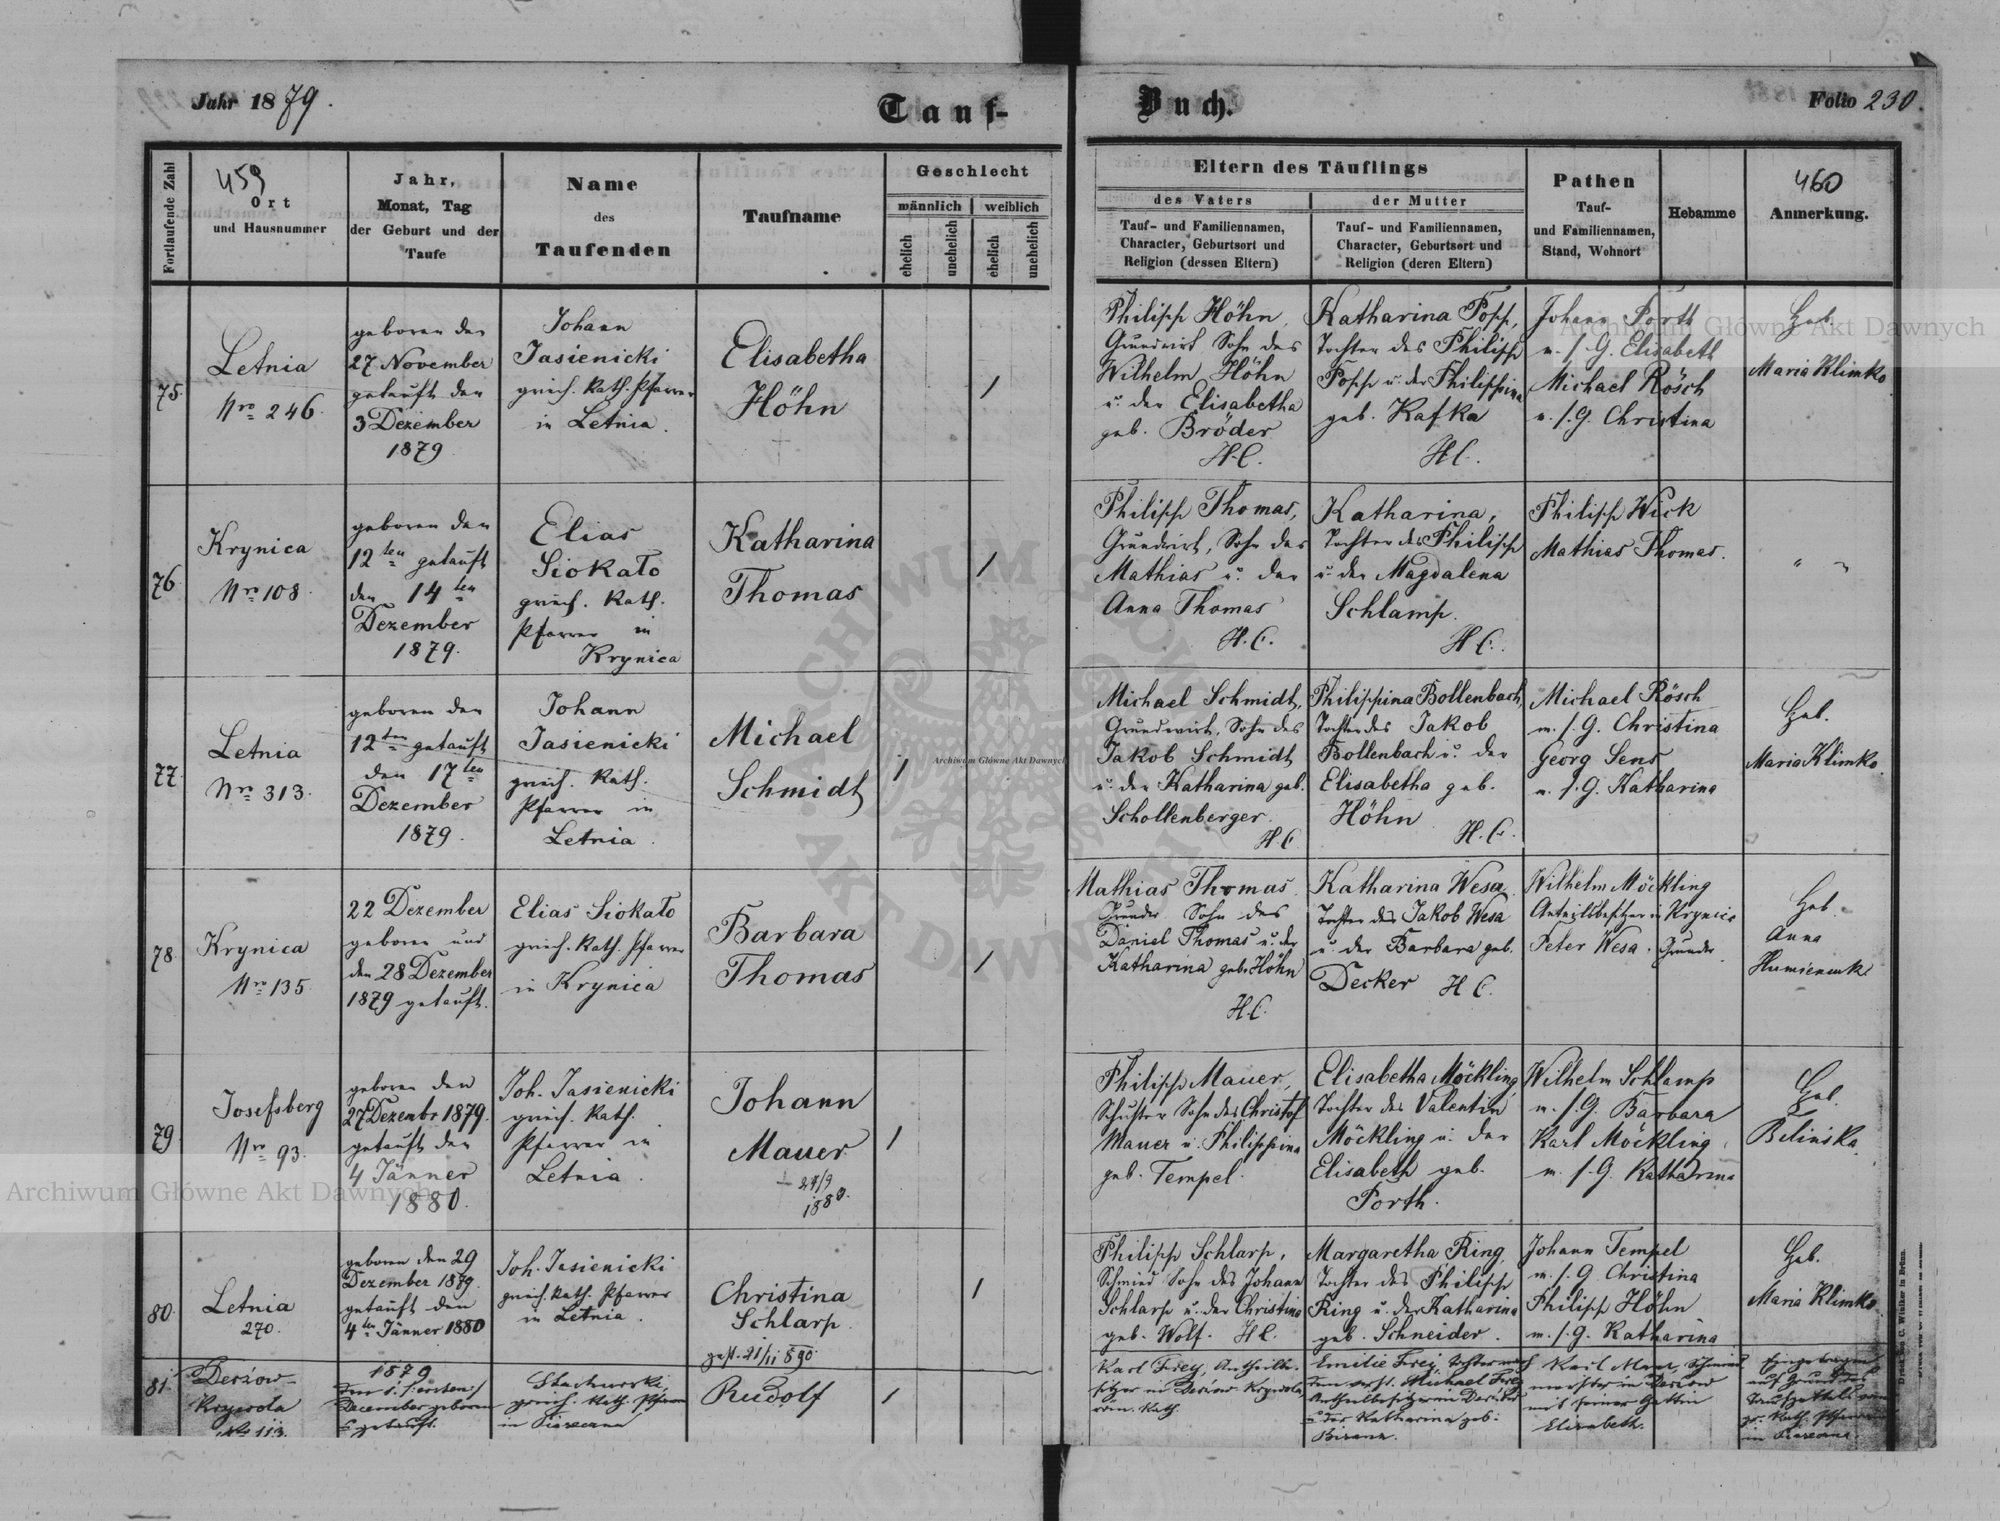 Jahr 1879.
Tauf-
Buch.
Folio 230.
Fortlaufende Zahl
459
Ort
und Hausnummer
Jahr,
Monat, Tag
der Geburt und der
Taufe
Name
des
Taufenden
Taufname
Geschlecht
männlich
weiblich
ehelich
unehelich
ehelich
unehelich
Eltern des Täuflings
des Vaters
der Mutter
Tauf- und Familiennamen,
Character, Geburtsort und
Religion (dessen Eltern)
Tauf- und Familiennamen,
Character, Geburtsort und
Religion (deren Eltern)
Pathen
Tauf-
und Familiennamen,
Stand, Wohnort
Hebamme
460
Anmerkung.
75.
Letnia
Nro 246.
geboren den
27 November
getauft den
3 Dezember
1879
Johann
Jasienicki
griech. kath. Pfarrer
in Letnia.
Elisabetha
Höhn
/
Philipp Höhn,
Grundwirt Sohn des
Wilhelm Höhn
u. der Elisabetha
geb. Bröder
H.C.
Katharina Popp,
Tochter des Philipp
Popp u. der Philippina
geb. Kafka
H.C.
Johann Porth
u. s. G. Elisabeth
Michael Rösch
u. s. G. Christina
Heb.
Maria Klimko
76.
Krynica
Nro 108.
geboren den
12ten getauft
den 14ten
Dezember
1879.
Elias
Siokało
griech. kath.
Pfarrer in
Krynica
Katharina
Thomas
/
Philipp Thomas,
Grundwirt, Sohn des
Mathias u. der
Anna Thomas
H.C.
Katharina,
Tochter des Philipp
u. der Magdalena
Schlamp.
H.C.
Philipp Wick
Mathias Thomas.
" "
77.
Letnia
Nro 313.
geboren den
12ten getauft
den 17ten
Dezember
1879.
Johann
Jasienicki
griech. kath.
Pfarrer in
Letnia.
Michael
Schmidt
/
Michael Schmidt,
Grundwirt, Sohn des
Jakob Schmidt
u. der Katharina geb.
Schollenberger.
H.C.
Philippina Bollenbach,
Tochter des Jakob
Bollenbach u. der
Elisabetha geb.
Höhn
H.C.
Michael Rösch
m. s. G. Christina
Georg Sens
u. s. G. Katharina
Heb.
Maria Klimko.
78.
Krynica
Nro 135.
22 Dezember
geboren und
den 28 Dezember
1879 getauft.
Elias Siokało
griech. kath. Pfarrer
in Krynica
Barbara
Thomas
/
Mathias Thomas
Grunder Sohn des
Daniel Thomas u. der
Katharina geb. Höhn
H.C.
Katharina Wesa
Tochter des Jakob Wesa
u. der Barbara geb.
Decker H.C.
Wilhelm Möckling
Anteilsbesitzer in Krynica
Peter Wesa. Grunder
Heb.
Anna
79.
Josefsberg
Nro 93.
geboren den
27 Dezembr. 1879.
getauft den
4 Jänner
1880.
Joh. Jasienicki
griech. kath.
Pfarrer in
Letnia.
Johann
Mauer
/
Philipp Mauer,
Schuster Sohn des Christof
Mauer u. Philippina
geb. Tempel.
Elisabetha Möckling
Tochter des Valentin
Möckling u. der
Elisabeth geb.
Porth.
Wilhelm Schlamp
u. s. G. Barbara
Karl Möckling,
m. s. G. Katharina
Heb.
Belińska.
80.
Letnia
270.
geboren den 29
Dezember 1879.
getauft den
4ten Jänner 1880
Joh. Jasienicki
griech. kath. Pfarrer
in Letnia.
Christina
Schlarp.
gest. 21/11 890
/
Philipp Schlarp,
Schmied Sohn des Johann
Schlarp u. der Christina
geb. Wolf. H.C.
Margaretha Ring,
Tochter des Philipp
Ring u. der Katharina
geb. Schneider.
Johann Tempel
m. s. G. Christina
Philipp Höhn
m. s. G. Katharina
Heb.
Maria Klimko
81.
Deriow-
Krywola
No 113.
1879
December geboren
griech. kath. Pfarrer
Rudolf
/
Karl Frey, Antheilbe-
sitzer in
röm. kath.
Emilie Frey Tochter
Michael Frey
u der Katharina geb:
mit seiner Gattin
Elisabeth.
Eingetragen
auf Grund des
Archiwum Główne Akt Dawnych
Archiwum Główne Akt Dawnych
Archiwum Główne Akt Dawnych
Druck bei C. Winiker in Brünn.